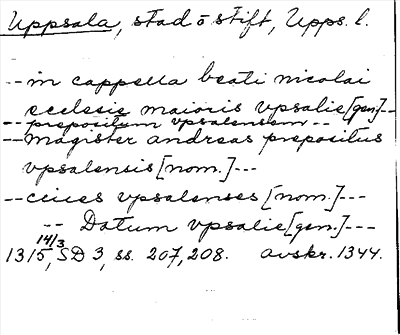 Uppsala, stad o stift, Upps. l.
-- in cappella beati nicolai
ecclesie maioris vpsalie [gen.]--
-- prepositum vpsalensem --
-- magister andreas prepositus
vpsalensis [nom.]---
-- ciues vpsalenses [nom.]---
-- Datum vpsalie [gen.]---
1315 14/3, SD 3, ss. 207, 208. avskr. 1344.